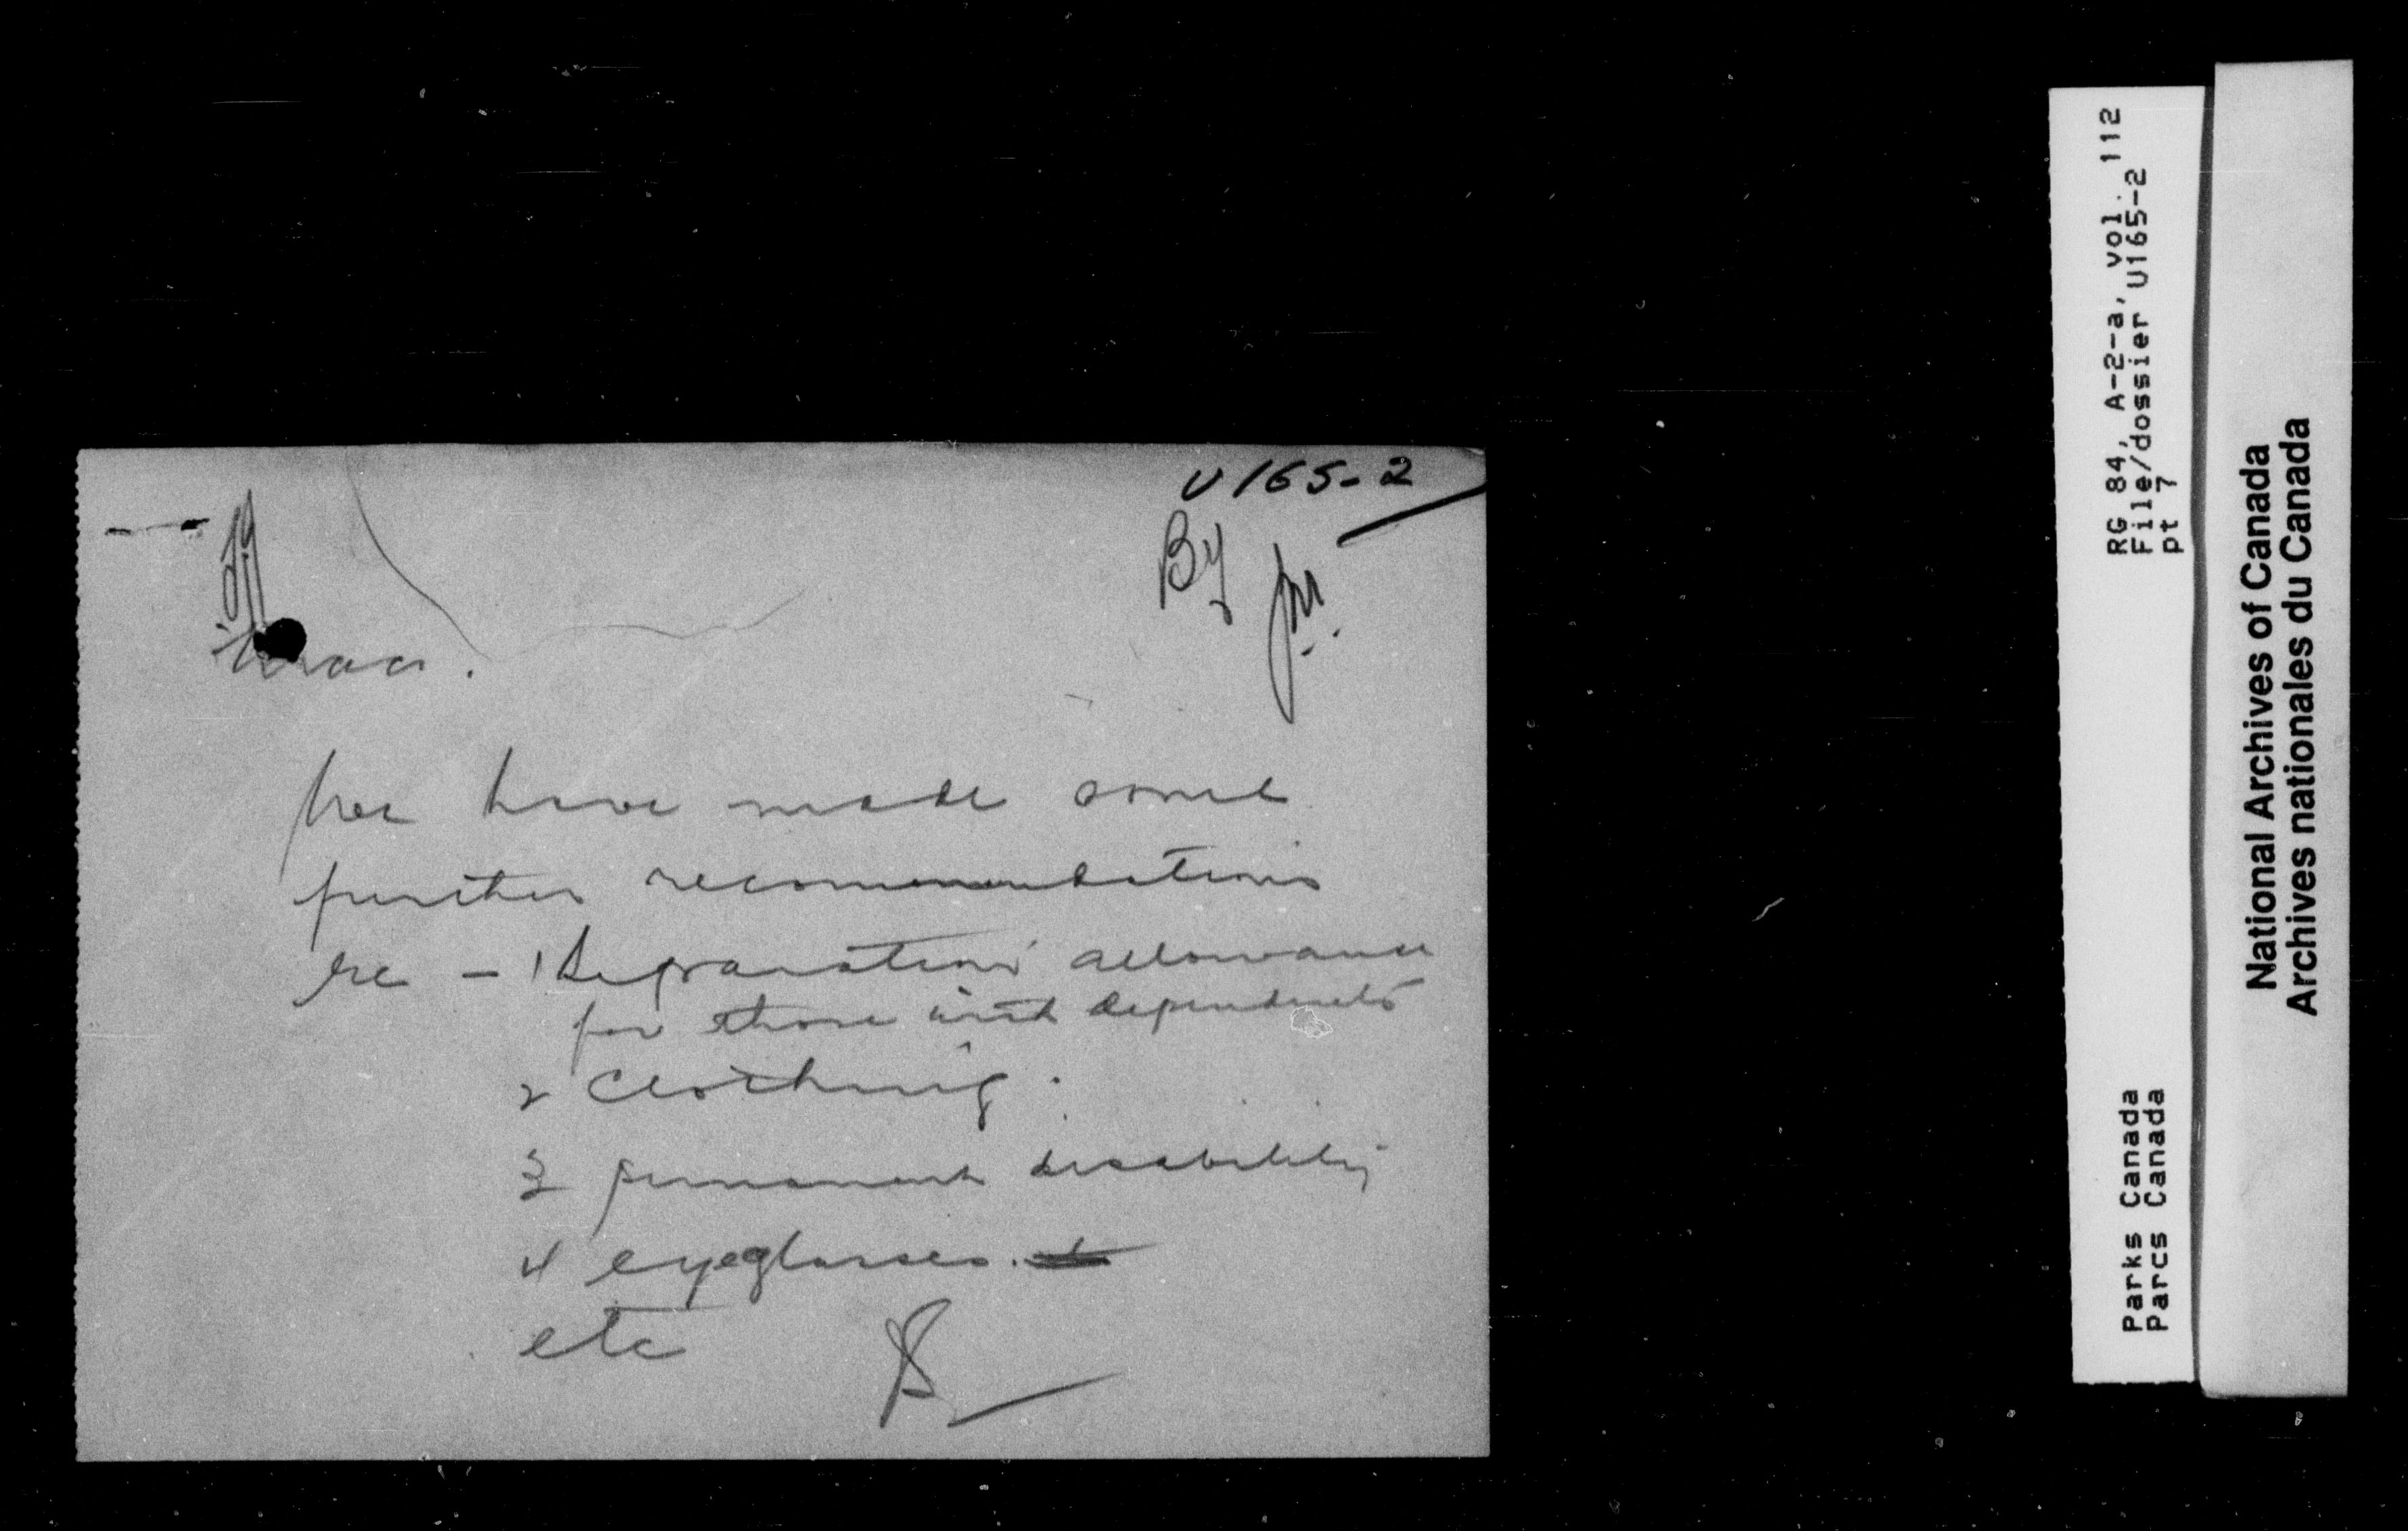 U165-2
By
We have made some
further recommendations
re - 1 Separation allowance
for those with dependents
2 Clothing.
3 permanent disability
4 eyeglasses.
etc
RG 84, A-2-a, vol. 112
File/dossier U165-2
pt 7
Parks Canada
Parcs Canada
National Archives of Canada
Archives nationales du Canada